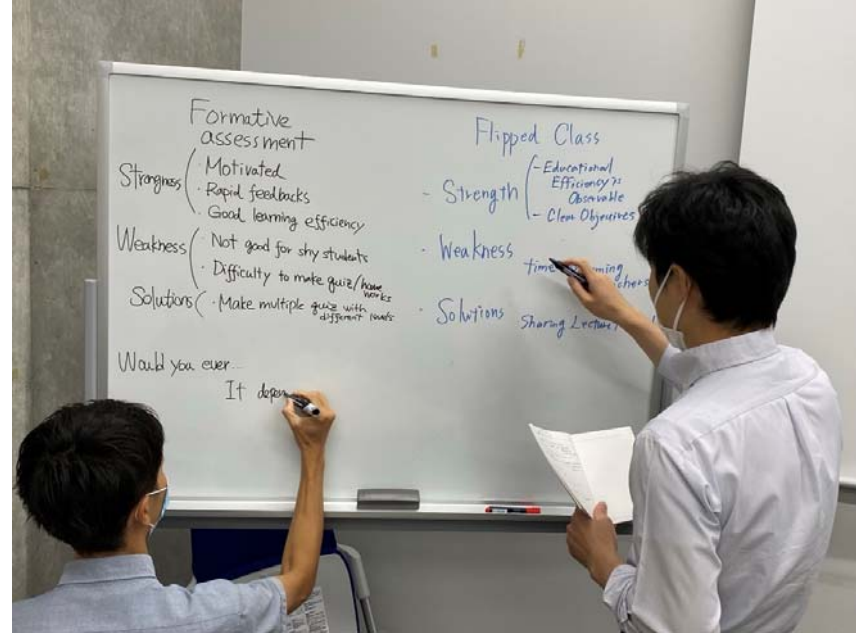 Formative
assessment
Strongness
· Motivated
· Rapid feedbacks
· Good learning efficiency
Weakness
· Not good for shy students
· Difficulty to make quiz/home
works
Solutions
· Make multiple quiz with
different levels
Would you ever...
It depen
Flipped Class
- Strength
- Educational
Efficiency is
Observable
- Clear Objectives
· Weakness
time
· Solutions
Sharing Lecture